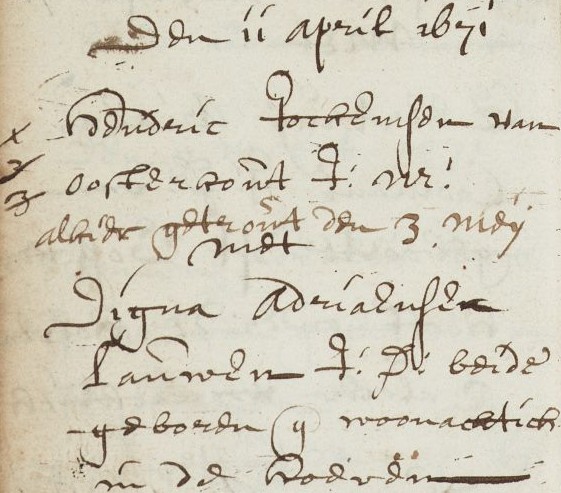 Den 11 april 1671
Hendric Jockemsen van
x
2
3
oosterhout J: M:
alhier getrout den 3 Meij
met
Digna Adriaensen
Lauwen J: D: beide
geboren woonachtich
in de Hoeven